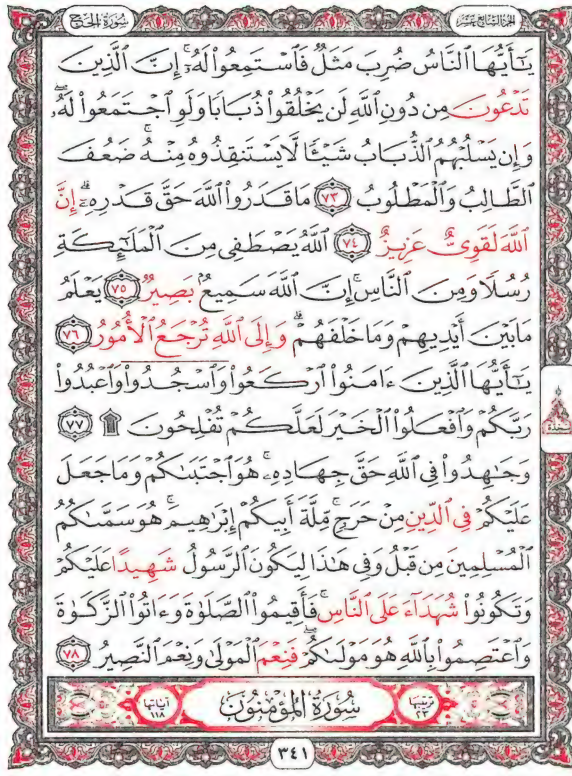 سُورَةُ الحَجّ
الجُزْءُ السَّابِعَ عَشَرَ
يَـٰٓأَيُّهَا ٱلنَّاسُ ضُرِبَ مَثَلٌ فَٱسْتَمِعُوا۟ لَهُۥٓ ۚ إِنَّ ٱلَّذِينَ
تَدْعُونَ مِن دُونِ ٱللَّهِ لَن يَخْلُقُوا۟ ذُبَابًا وَلَوِ ٱجْتَمَعُوا۟ لَهُۥ ۖ
وَإِن يَسْلُبْهُمُ ٱلذُّبَابُ شَيْـًٔا لَّا يَسْتَنقِذُوهُ مِنْهُ ۚ ضَعُفَ
ٱلطَّالِبُ وَٱلْمَطْلُوبُ ٧٣ مَا قَدَرُوا۟ ٱللَّهَ حَقَّ قَدْرِهِۦٓ ۗ إِنَّ
ٱللَّهَ لَقَوِىٌّ عَزِيزٌ ٧٤ ٱللَّهُ يَصْطَفِى مِنَ ٱلْمَلَـٰٓئِكَةِ
رُسُلًا وَمِنَ ٱلنَّاسِ ۚ إِنَّ ٱللَّهَ سَمِيعٌۢ بَصِيرٌ ٧٥ يَعْلَمُ
مَا بَيْنَ أَيْدِيهِمْ وَمَا خَلْفَهُمْ ۗ وَإِلَى ٱللَّهِ تُرْجَعُ ٱلْأُمُورُ ٧٦
يَـٰٓأَيُّهَا ٱلَّذِينَ ءَامَنُوا۟ ٱرْكَعُوا۟ وَٱسْجُدُوا۟ وَٱعْبُدُوا۟
رَبَّكُمْ وَٱفْعَلُوا۟ ٱلْخَيْرَ لَعَلَّكُمْ تُفْلِحُونَ ۩ ٧٧
سجدة
وَجَـٰهِدُوا۟ فِى ٱللَّهِ حَقَّ جِهَادِهِۦ ۚ هُوَ ٱجْتَبَىٰكُمْ وَمَا جَعَلَ
عَلَيْكُمْ فِى ٱلدِّينِ مِنْ حَرَجٍ ۚ مِّلَّةَ أَبِيكُمْ إِبْرَٰهِيمَ ۚ هُوَ سَمَّىٰكُمُ
ٱلْمُسْلِمِينَ مِن قَبْلُ وَفِى هَـٰذَا لِيَكُونَ ٱلرَّسُولُ شَهِيدًا عَلَيْكُمْ
وَتَكُونُوا۟ شُهَدَآءَ عَلَى ٱلنَّاسِ ۚ فَأَقِيمُوا۟ ٱلصَّلَوٰةَ وَءَاتُوا۟ ٱلزَّكَوٰةَ
وَٱعْتَصِمُوا۟ بِٱللَّهِ هُوَ مَوْلَىٰكُمْ ۖ فَنِعْمَ ٱلْمَوْلَىٰ وَنِعْمَ ٱلنَّصِيرُ ٧٨
ترتيبها ٢٣ سُورَةُ المُؤْمِنُون آياتها ١١٨
٣٤١